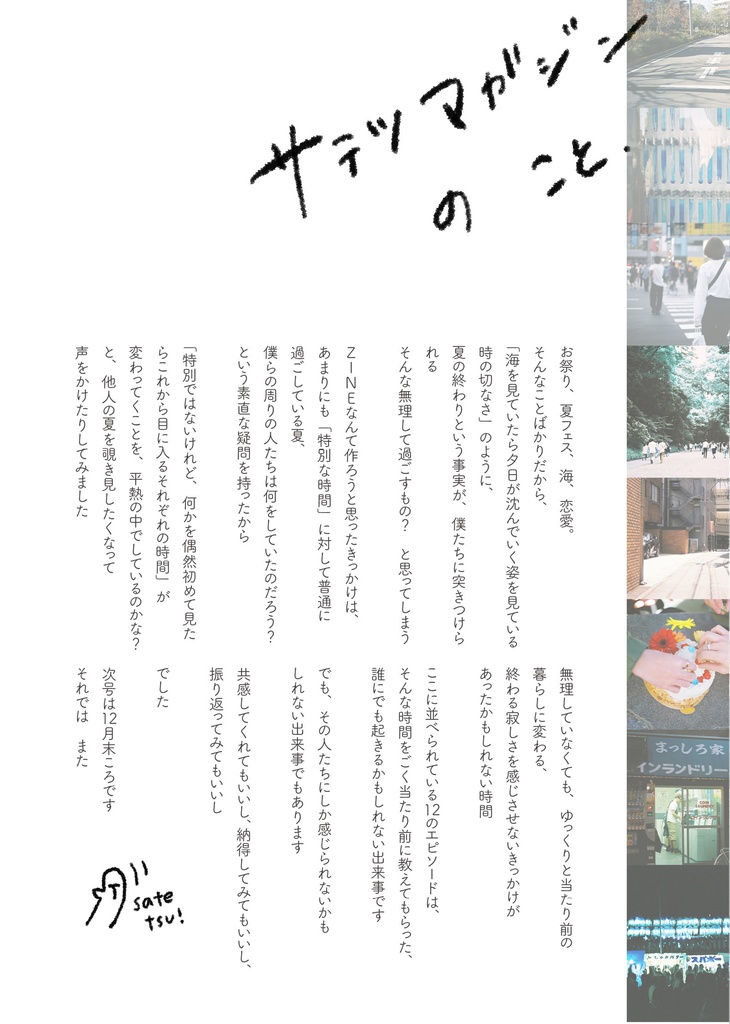 サテツマガジン
のこと.
お祭り、夏フェス、海、恋愛。
そんなことばかりだから、
「海を見ていたら夕日が沈んでいく姿を見ている
時の切なさ」のように、
夏の終わりという事実が、僕たちに突きつけら
れる
そんな無理して過ごすもの？　と思ってしまう
ＺＩＮＥなんて作ろうと思ったきっかけは、
あまりにも「特別な時間」に対して普通に
過ごしている夏、
僕らの周りの人たちは何をしていたのだろう？
という素直な疑問を持ったから
「特別ではないけれど、何かを偶然初めて見た
らこれから目に入るそれぞれの時間」が
変わってくことを、平熱の中でしているのかな？
と、他人の夏を覗き見したくなって
声をかけたりしてみました
無理していなくても、ゆっくりと当たり前の
暮らしに変わる、
終わる寂しさを感じさせないきっかけが
あったかもしれない時間
ここに並べられている12のエピソードは、
そんな時間をごく当たり前に教えてもらった、
誰にでも起きるかもしれない出来事です
でも、その人たちにしか感じられないかも
しれない出来事でもあります
共感してくれてもいいし、納得してみてもいいし、
振り返ってみてもいいし
でした
次号は12月末ころです
それでは　また
sate
tsu!
まっしろ家
インランドリー
スパボー